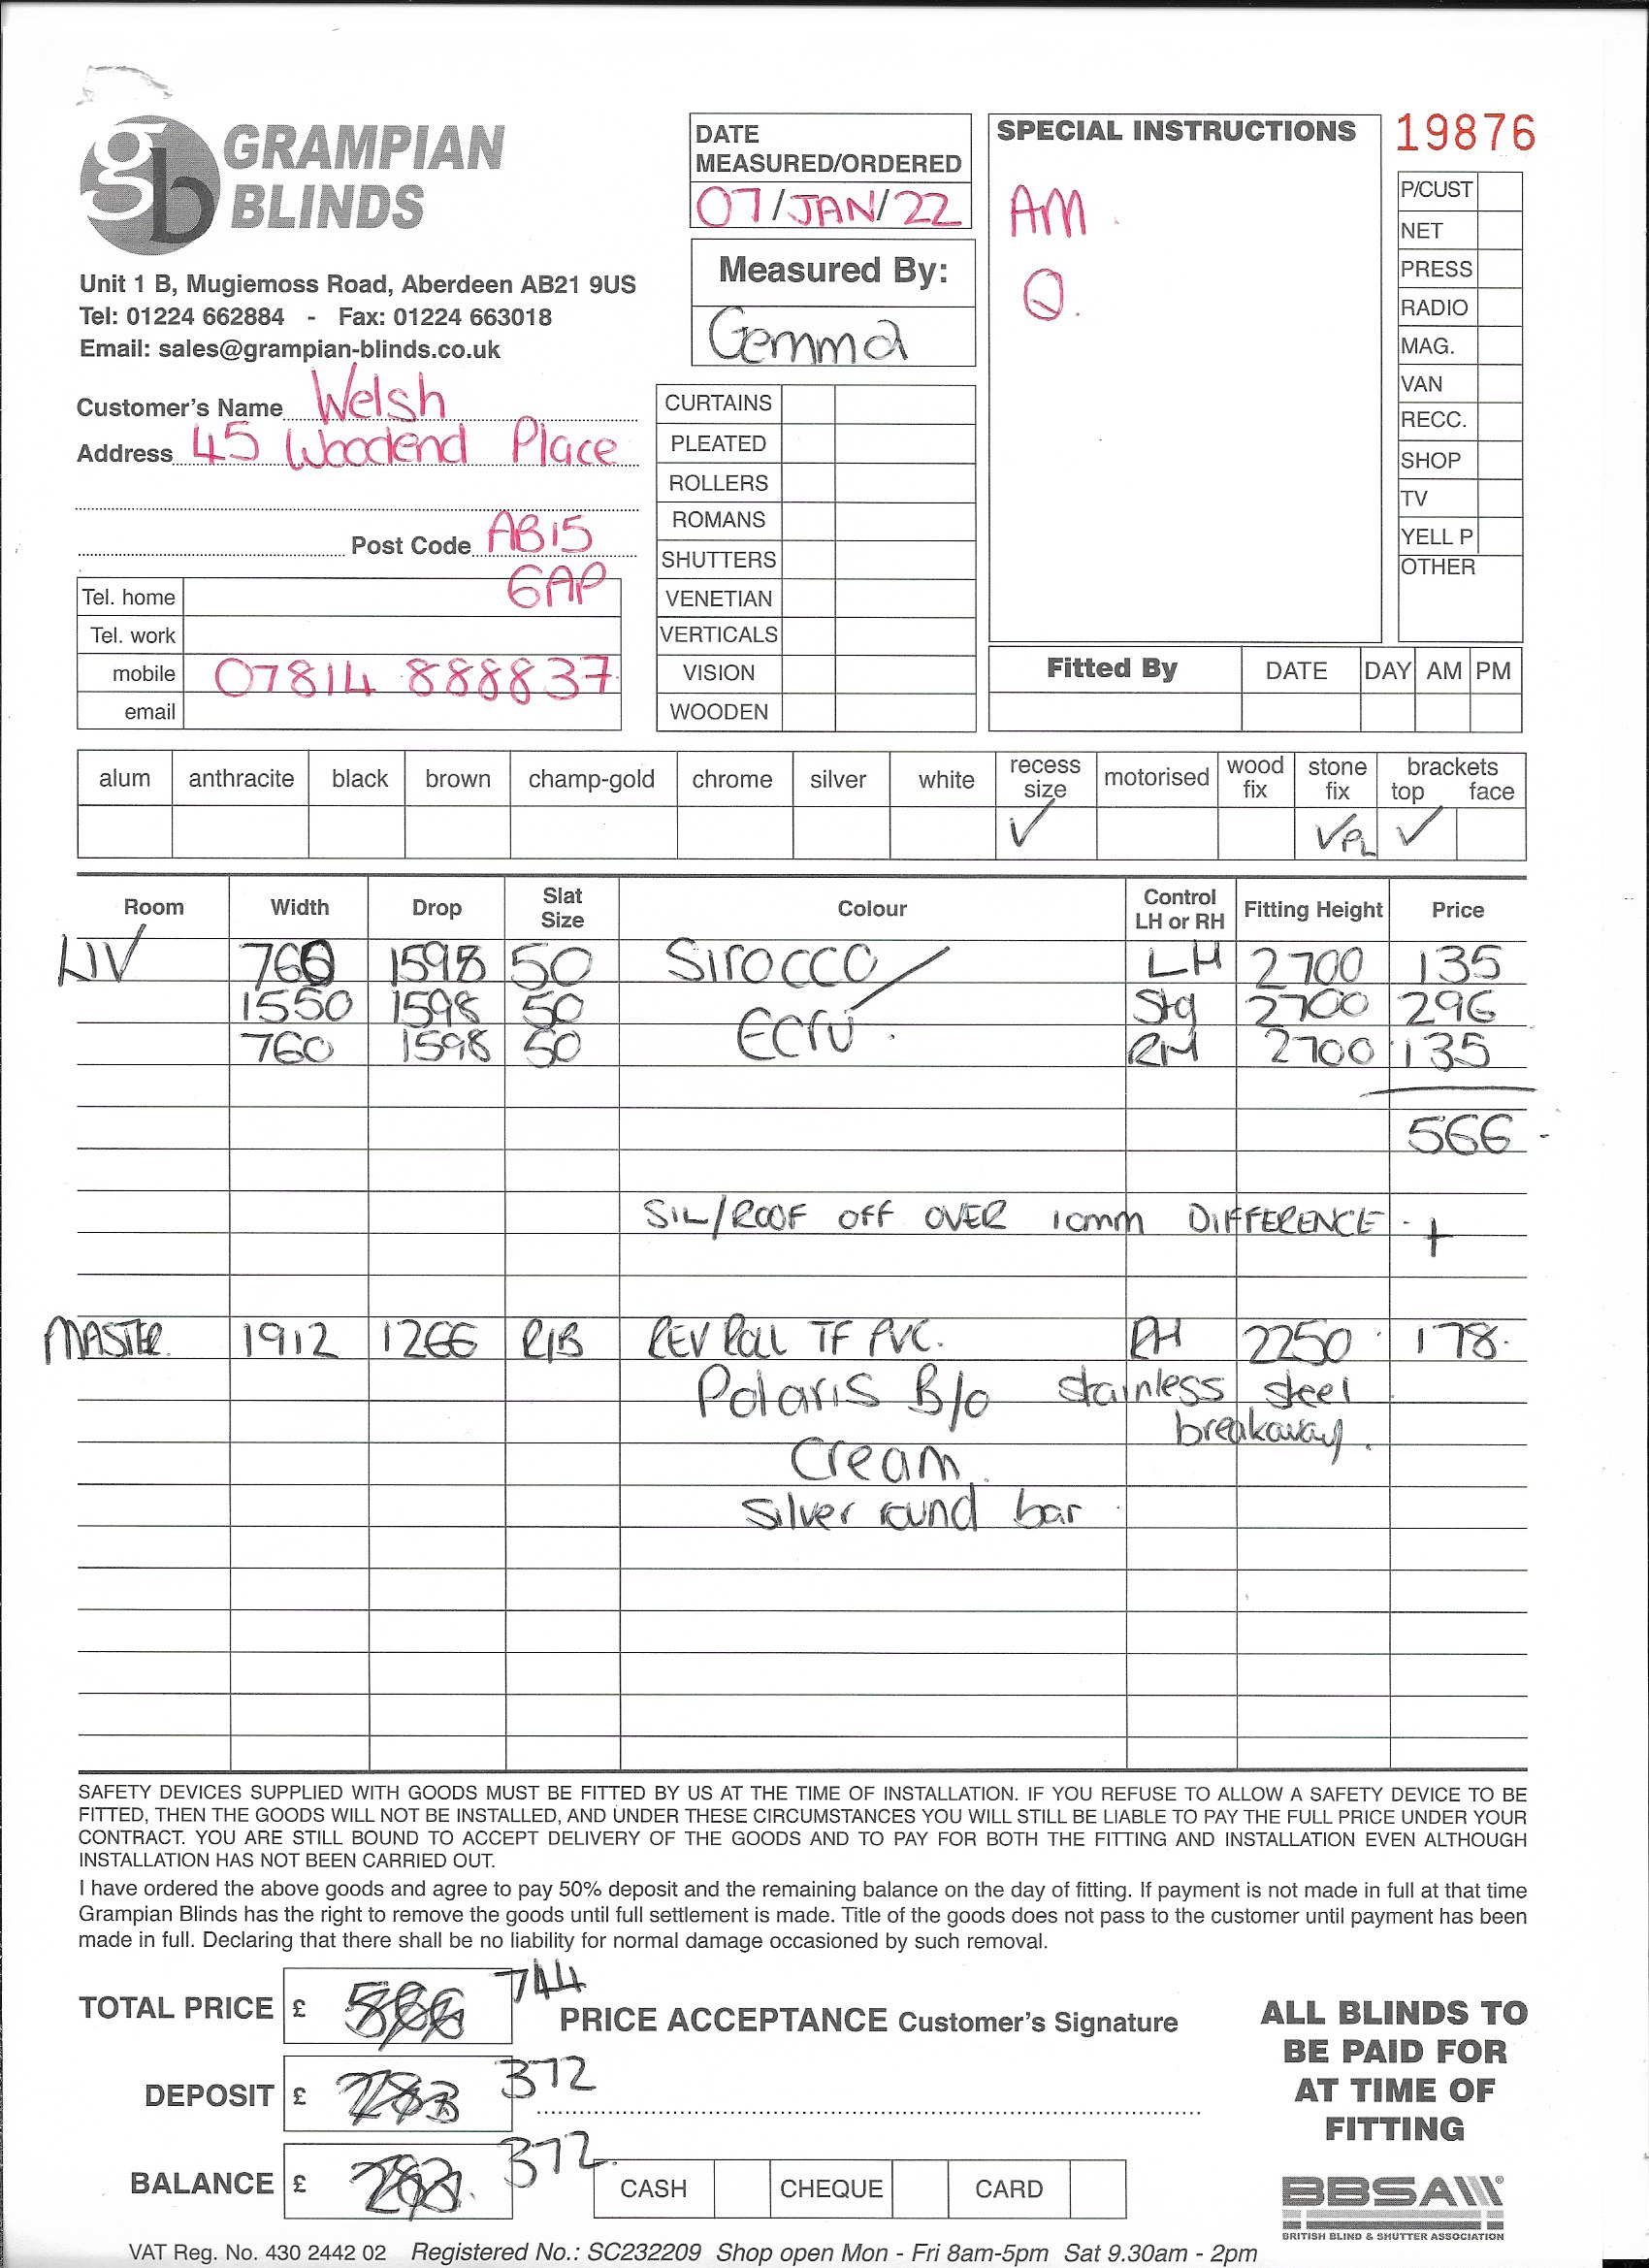 gb GRAMPIAN BLINDS
Unit 1 B, Mugiemoss Road, Aberdeen AB21 9US
Tel: 01224 662884 - Fax: 01224 663018
Email: sales@grampian-blinds.co.uk
Customer's Name Welsh
Address 45 Woodend Place
Post Code AB15
6AP
Tel. home
Tel. work
mobile 07814 888837
email
DATE
MEASURED/ORDERED
07/JAN/22
Measured By:
Gemma
CURTAINS
PLEATED
ROLLERS
ROMANS
SHUTTERS
VENETIAN
VERTICALS
VISION
WOODEN
SPECIAL INSTRUCTIONS
AM.
Q.
19876
P/CUST
NET
PRESS
RADIO
MAG.
VAN
RECC.
SHOP
TV
YELL P
OTHER
Fitted By DATE DAY AM PM
alum anthracite black brown champ-gold chrome silver white recess size motorised wood fix stone fix brackets top face
✓ ✓ PL ✓
Room Width Drop Slat Size Colour Control LH or RH Fitting Height Price
LIV 760 1598 50 Sirocco/ LH 2700 135
1550 1598 50 Ecru. Stg 2700 296
760 1598 50 RH 2700 135
566
SIL/ROOF OFF OVER 10mm DIFFERENCE. +
MASTER. 1912 1266 R/B REV ROLL TF PVC. RH 2250 178.
Polaris B/o stainless steel
breakaway.
Cream.
Silver round bar
SAFETY DEVICES SUPPLIED WITH GOODS MUST BE FITTED BY US AT THE TIME OF INSTALLATION. IF YOU REFUSE TO ALLOW A SAFETY DEVICE TO BE
FITTED, THEN THE GOODS WILL NOT BE INSTALLED, AND UNDER THESE CIRCUMSTANCES YOU WILL STILL BE LIABLE TO PAY THE FULL PRICE UNDER YOUR
CONTRACT. YOU ARE STILL BOUND TO ACCEPT DELIVERY OF THE GOODS AND TO PAY FOR BOTH THE FITTING AND INSTALLATION EVEN ALTHOUGH
INSTALLATION HAS NOT BEEN CARRIED OUT.
I have ordered the above goods and agree to pay 50% deposit and the remaining balance on the day of fitting. If payment is not made in full at that time
Grampian Blinds has the right to remove the goods until full settlement is made. Title of the goods does not pass to the customer until payment has been
made in full. Declaring that there shall be no liability for normal damage occasioned by such removal.
TOTAL PRICE £ 566 744
DEPOSIT £ 283 372
BALANCE £ 283. 372.
PRICE ACCEPTANCE Customer's Signature
CASH CHEQUE CARD
ALL BLINDS TO
BE PAID FOR
AT TIME OF
FITTING
BBSA
BRITISH BLIND & SHUTTER ASSOCIATION
VAT Reg. No. 430 2442 02 Registered No.: SC232209 Shop open Mon - Fri 8am-5pm Sat 9.30am - 2pm